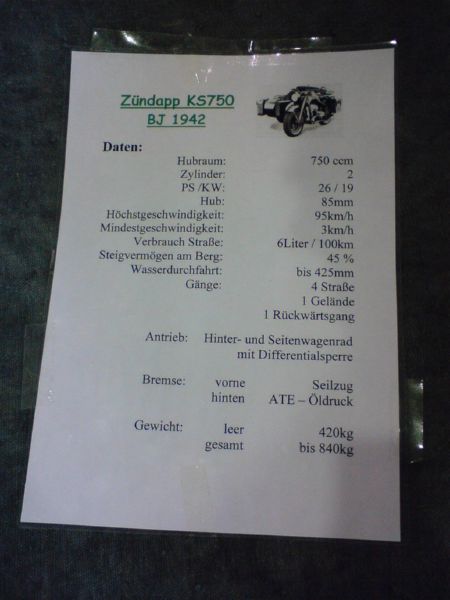 Zündapp KS750
BJ 1942
Daten:
Hubraum: 750 ccm
Zylinder: 2
PS /KW: 26 / 19
Hub: 85mm
Höchstgeschwindigkeit: 95km/h
Mindestgeschwindigkeit: 3km/h
Verbrauch Straße: 6Liter / 100km
Steigvermögen am Berg: 45 %
Wasserdurchfahrt: bis 425mm
Gänge: 4 Straße
1 Gelände
1 Rückwärtsgang
Antrieb: Hinter- und Seitenwagenrad
mit Differentialsperre
Bremse: vorne Seilzug
hinten ATE – Öldruck
Gewicht: leer 420kg
gesamt bis 840kg